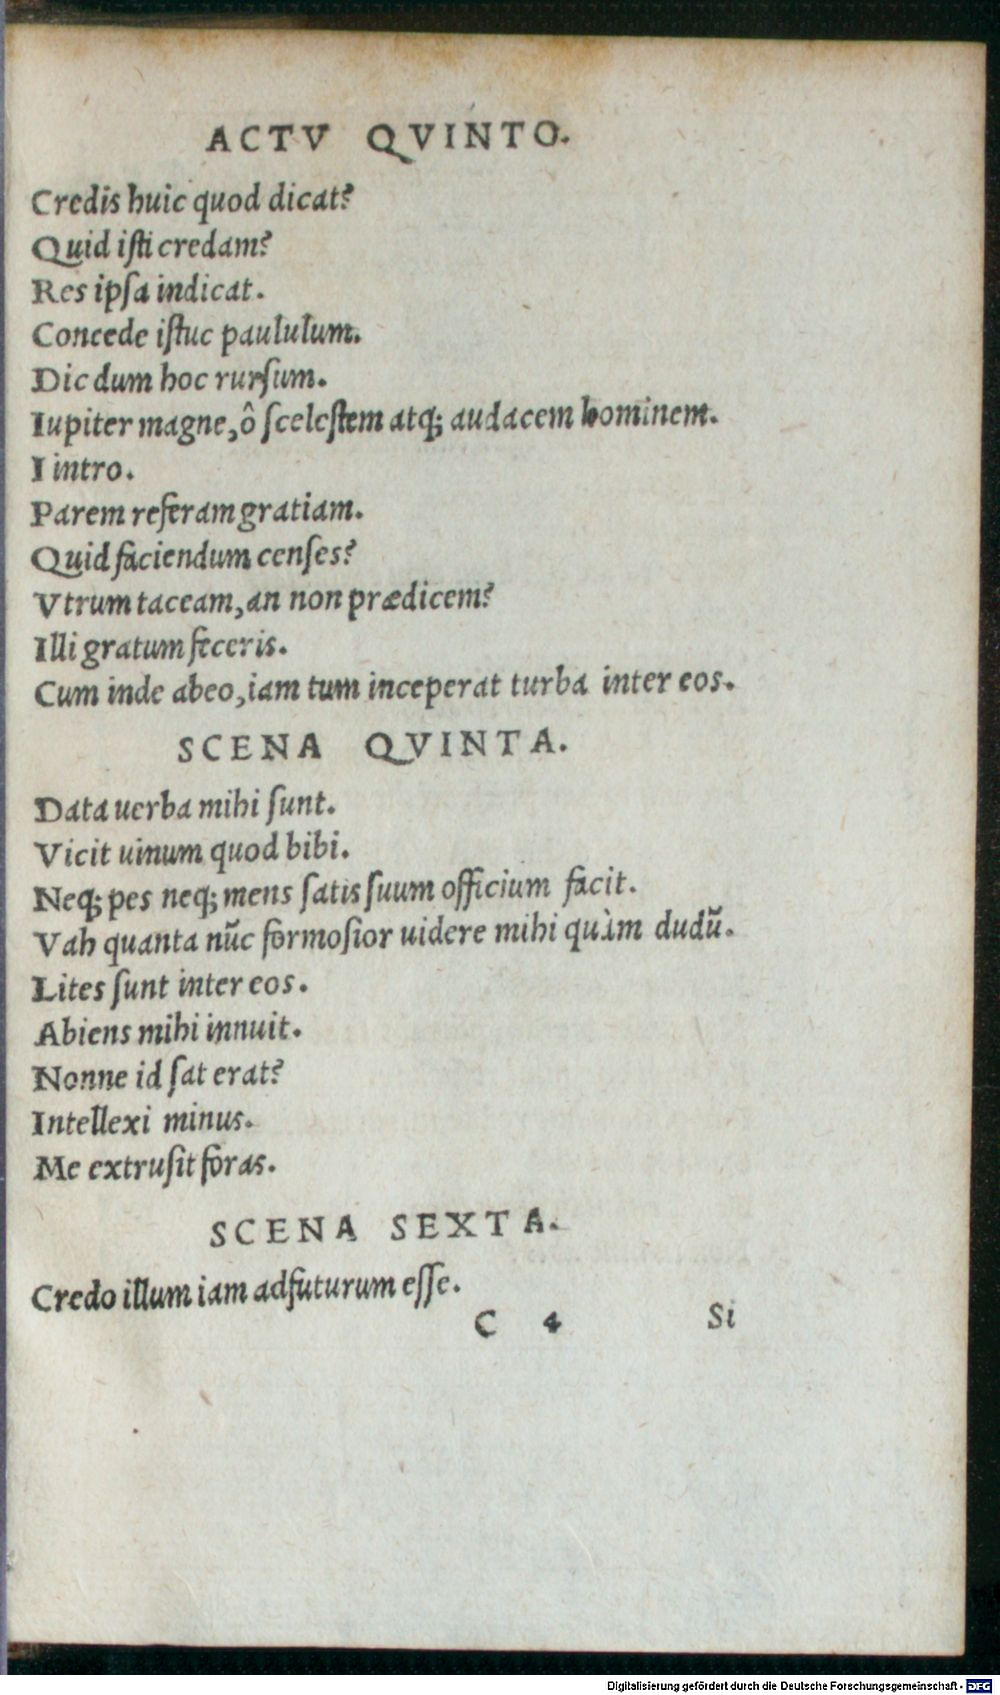 ACTV QVINTO.
Credis huic quod dicat?
Quid iſti credam?
Res ipſa indicat.
Concede iſtuc paululum.
Dic dum hoc rurſum.
Iupiter magne, ô ſceleſtem atq; audacem hominem.
I intro.
Parem referam gratiam.
Quid faciendum cenſes?
Vtrum taceam, an non prædicem?
Illi gratum feceris.
Cum inde abeo, iam tum inceperat turba inter eos.
SCENA QVINTA.
Data uerba mihi ſunt.
Vicit uinum quod bibi.
Neq; pes neq; mens ſatis ſuum officium facit.
Vah quanta nũc formoſior uidere mihi quàm dudũ.
Lites ſunt inter eos.
Abiens mihi innuit.
Nonne id ſat erat?
Intellexi minus.
Me extruſit foras.
SCENA SEXTA.
Credo illum iam adfuturum eſſe.
C 4 Si
Digitalisierung gefördert durch die Deutsche Forschungsgemeinschaft - DFG